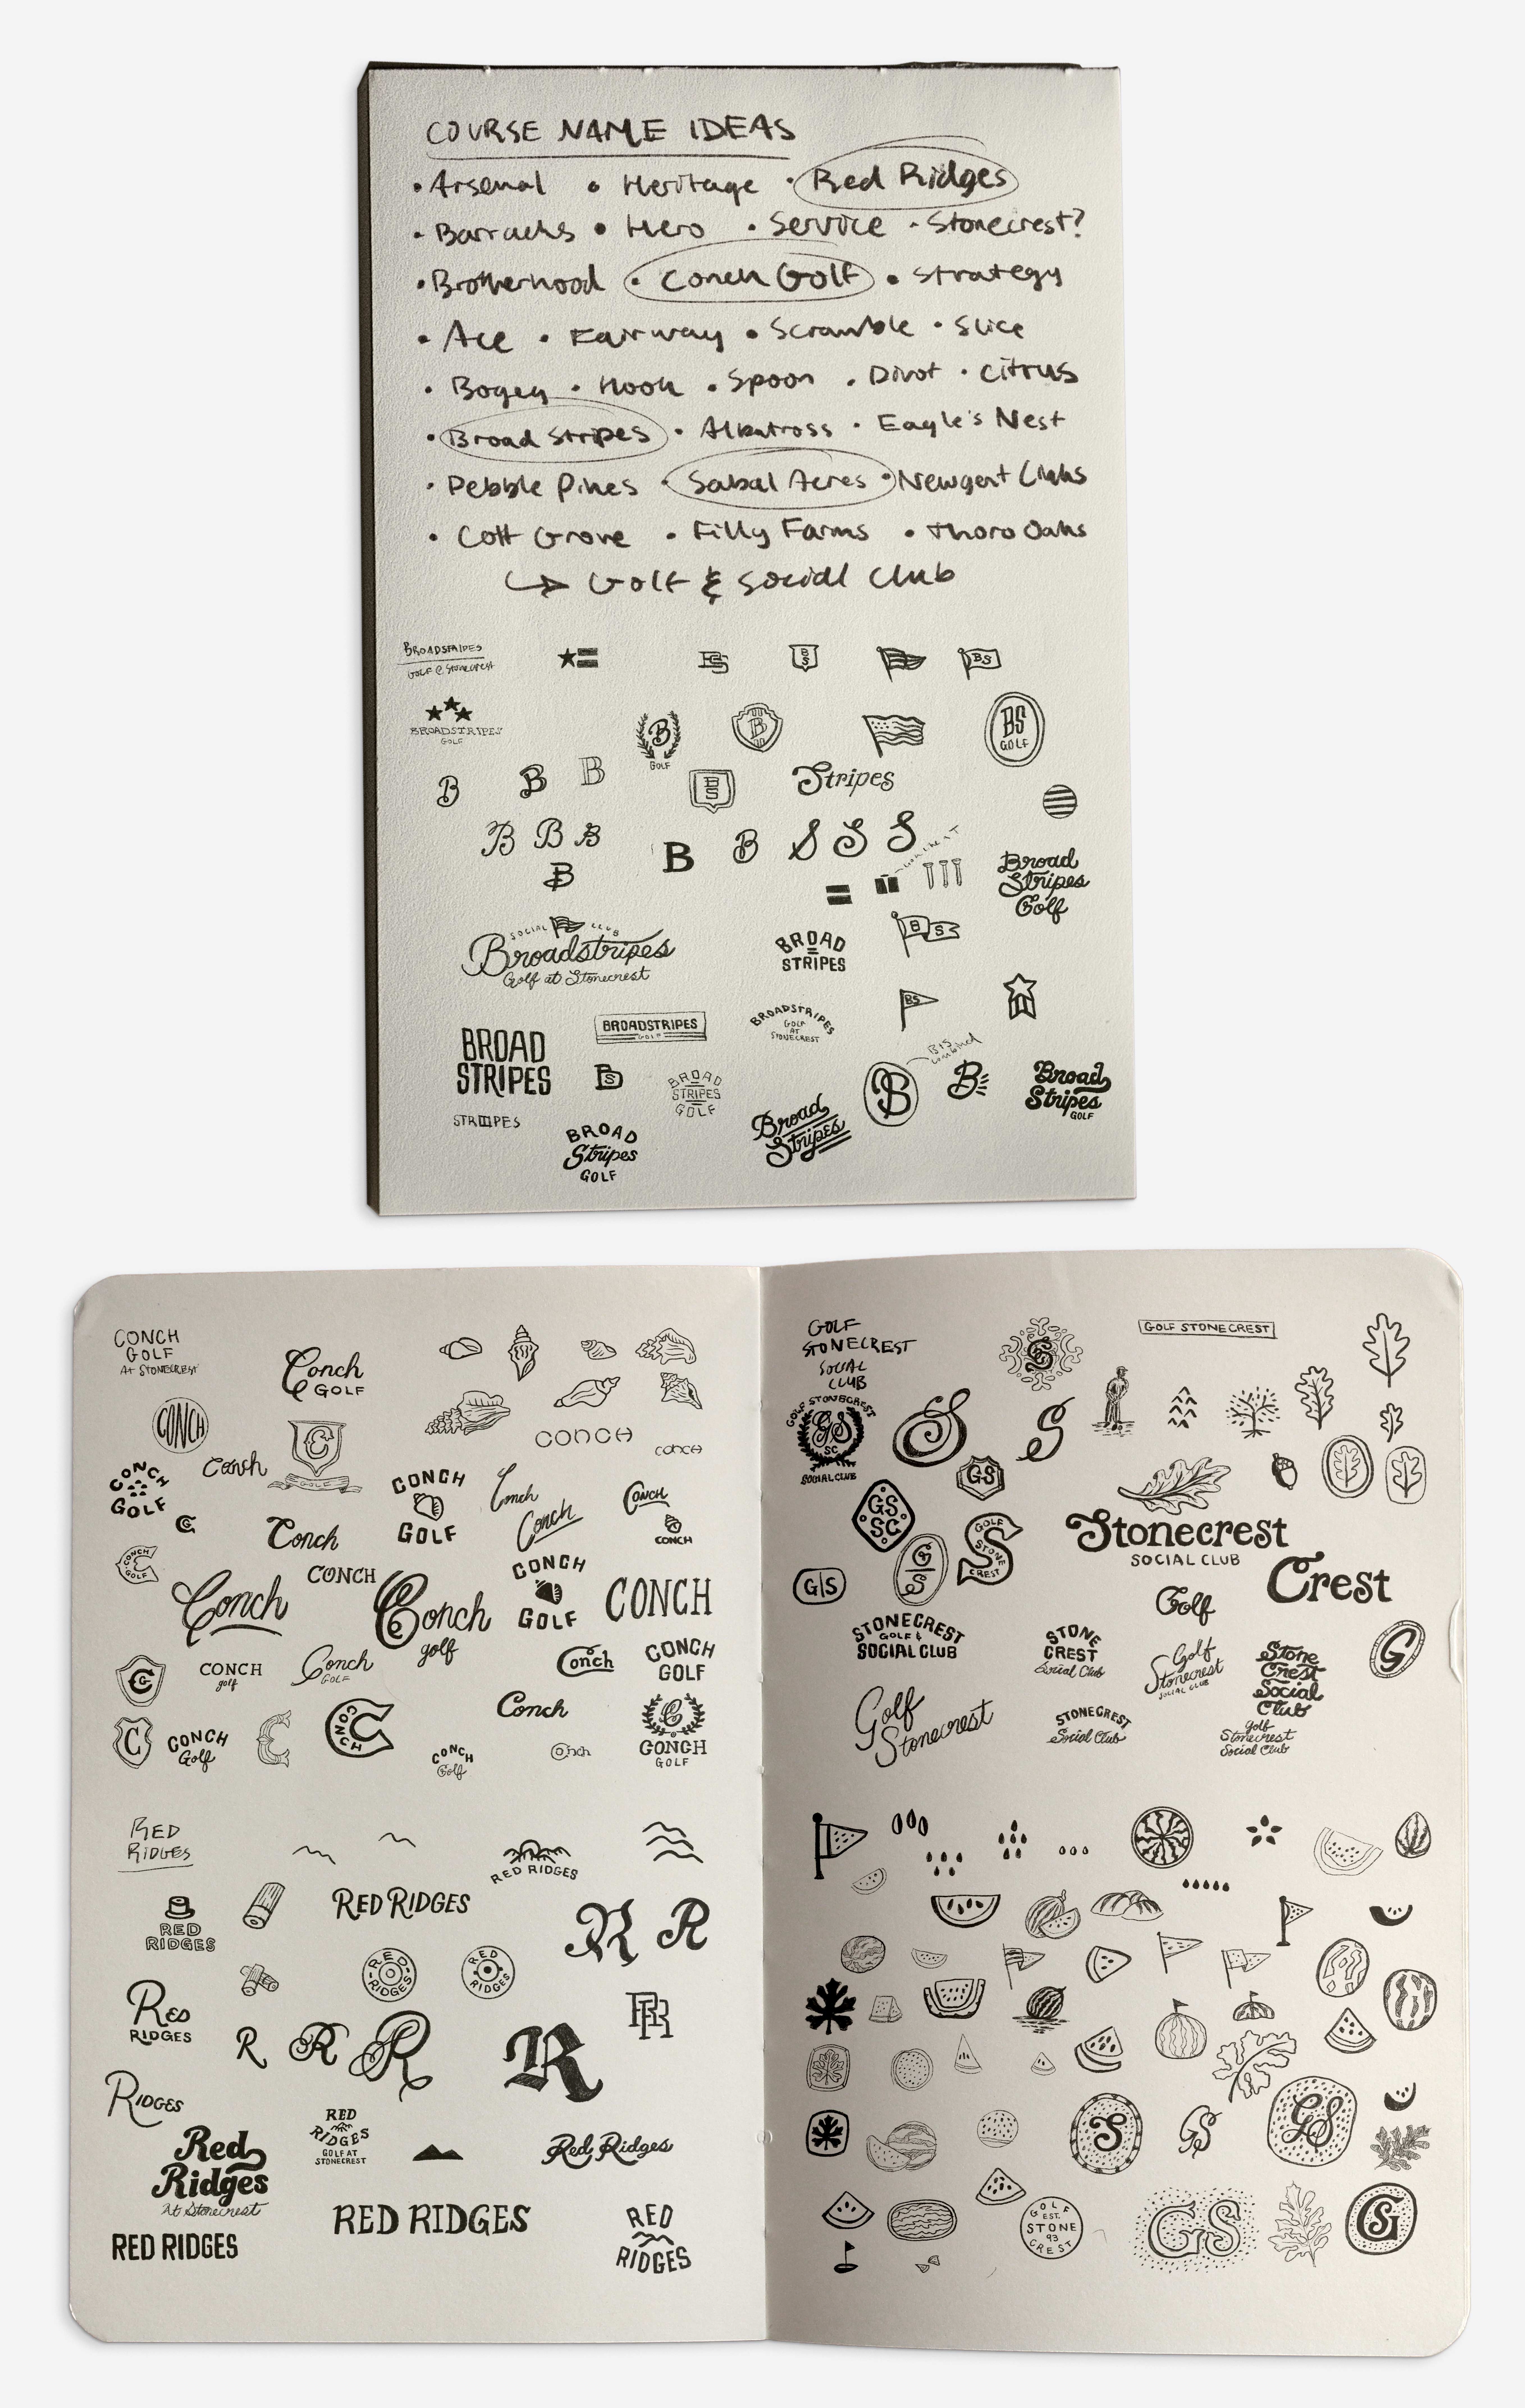 COURSE NAME IDEAS
• Arsenal • Heritage • Red Ridges
• Barracks • Hero • Service • Stonecrest?
• Brotherhood • Conch Golf • Strategy
• Ace • Fairway • Scramble • Slice
• Bogey • Hook • Spoon • Divot • Citrus
• Broad Stripes • Albatross • Eagle's Nest
• Pebble Pines • Sabal Acres • Newgent Links
• Colt Grove • Filly Farms • Thoro Oaks
↳ Golf & Social Club
BROADSTRIPES
GOLF @ Stonecrest
BS
BS
BS
BROADSTRIPES
GOLF
B
GOLF
B
BS
GOLF
B B B
BS
Stripes
B B B
B B S S S
B
Broad
Stripes
Golf
SOCIAL CLUB
Broadstripes
Golf at Stonecrest
BROAD
STRIPES
BS
BROAD
STRIPES
BROADSTRIPES
GOLF
BROADSTRIPES
GOLF
AT
STONECREST
BS
B+S
combined
BS
BROAD
STRIPES
GOLF
B
B
Broad
Stripes
GOLF
STRIPES
BROAD
Stripes
GOLF
Broad
Stripes
CONCH
GOLF
At STONECREST
Conch
GOLF
CONCH
C
GOLF
CONCH
CONCH
Conch
CONCH
GOLF
CONCH
GOLF
Conch
Conch
CONCH
C
Conch
CONCH
CONCH
GOLF
Conch
CONCH
Conch
golf
CONCH
GOLF
CONCH
C
CONCH
golf
Conch
GOLF
Conch
CONCH
GOLF
C
CONCH
Golf
C
CONCH
Conch
CONCH
Golf
Conch
C
CONCH
GOLF
RED
RIDGES
RED RIDGES
RED
RIDGES
RED RIDGES
R R
RED
RIDGES
RED
RIDGES
RED
RIDGES
RR
R R R
R
RIDGES
Red
Ridges
At Stonecrest
RED
RIDGES
GOLF AT
STONECREST
Red Ridges
RED RIDGES
RED RIDGES
RED
RIDGES
GOLF
STONECREST
SOCIAL
CLUB
S
GOLF STONECREST
GOLF STONECREST
GS
SC
SOCIAL CLUB
S
S
GS
GS
SC
G
S
GOLF
STONE
CREST
Stonecrest
SOCIAL CLUB
G|S
Crest
Golf
STONECREST
GOLF &
SOCIAL CLUB
STONE
CREST
Social Club
Golf
Stonecrest
SOCIAL CLUB
Stone
Crest
Social
Club
G
Golf
Stonecrest
STONECREST
Social Club
golf
Stonecrest
Social Club
S
GS
GS
GOLF
EST.
STONE
93
CREST
GS
GS